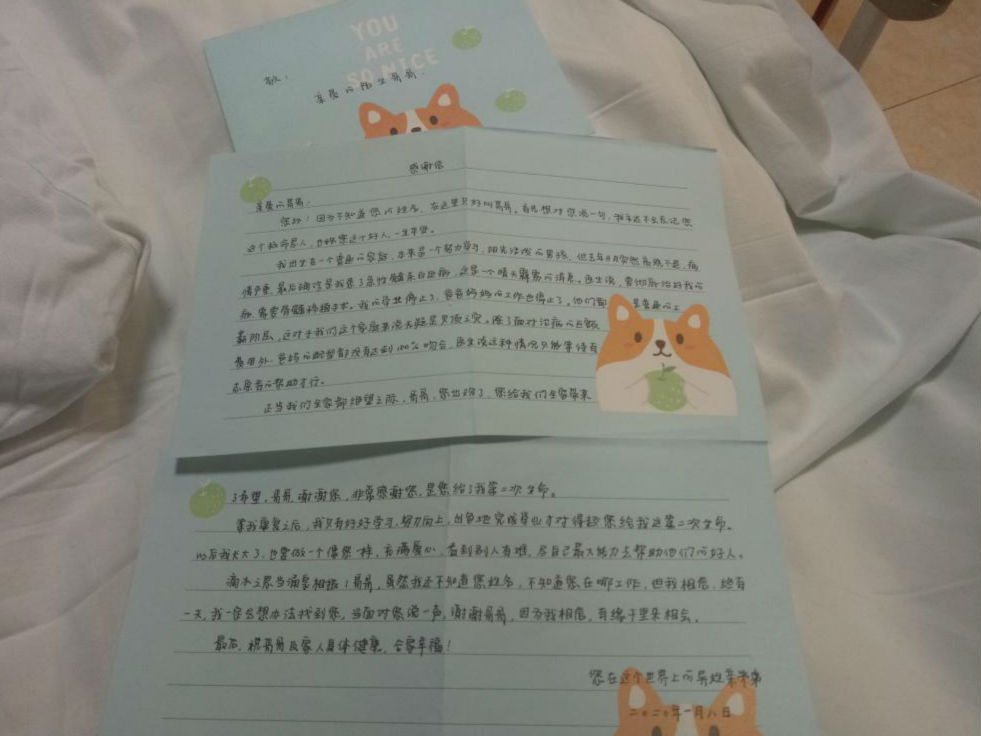 YOU
ARE
SO NICE
致：
亲爱的陌生哥哥
感谢信
亲爱的哥哥：
您好！因为不知道您的姓名，在这里只好叫哥哥。首先想对您说一句，我永远不会忘记您
这个救命恩人，好人一生平安。
我出生在一个普通的家庭，本来是一个努力学习，阳光活泼的男孩，但去年突然高烧不退，病
情严重，最后确诊是我患了急性髓系白血病，这是一个晴天霹雳的消息。医生说，要彻底治好我的
病，需要骨髓移植手术。我的学业停止了，爸爸妈妈的工作也停止了。他们都是普通的工
薪阶层，这对于我们这个家庭来说无疑是灭顶之灾。除了面对治病的巨额
费用外，爸妈的配型都没有达到100%吻合，医生说这种情况只能等待有
志愿者的帮助才行。
正当我们全家都绝望之际，哥哥，您出现了，您给我们全家带来
了希望，哥哥，谢谢您，非常感谢您，是您给了我第二次生命。
等我康复之后，我只有好好学习，努力向上，出色地完成学业才对得起您给我这第二次生命。
以后我长大了，也要做一个像您一样，充满爱心，看到别人有难，尽自己最大能力去帮助他们的好人。
滴水之恩当涌泉相报！哥哥，虽然我还不知道您姓名，不知道您在哪工作，但我相信，总有
一天，我一定会想办法找到您，当面对您说一声，谢谢哥哥，因为我相信，有缘千里来相会。
最后，祝哥哥及家人身体健康，合家幸福！
您在这个世界上的异姓亲弟弟
二〇二〇年一月八日